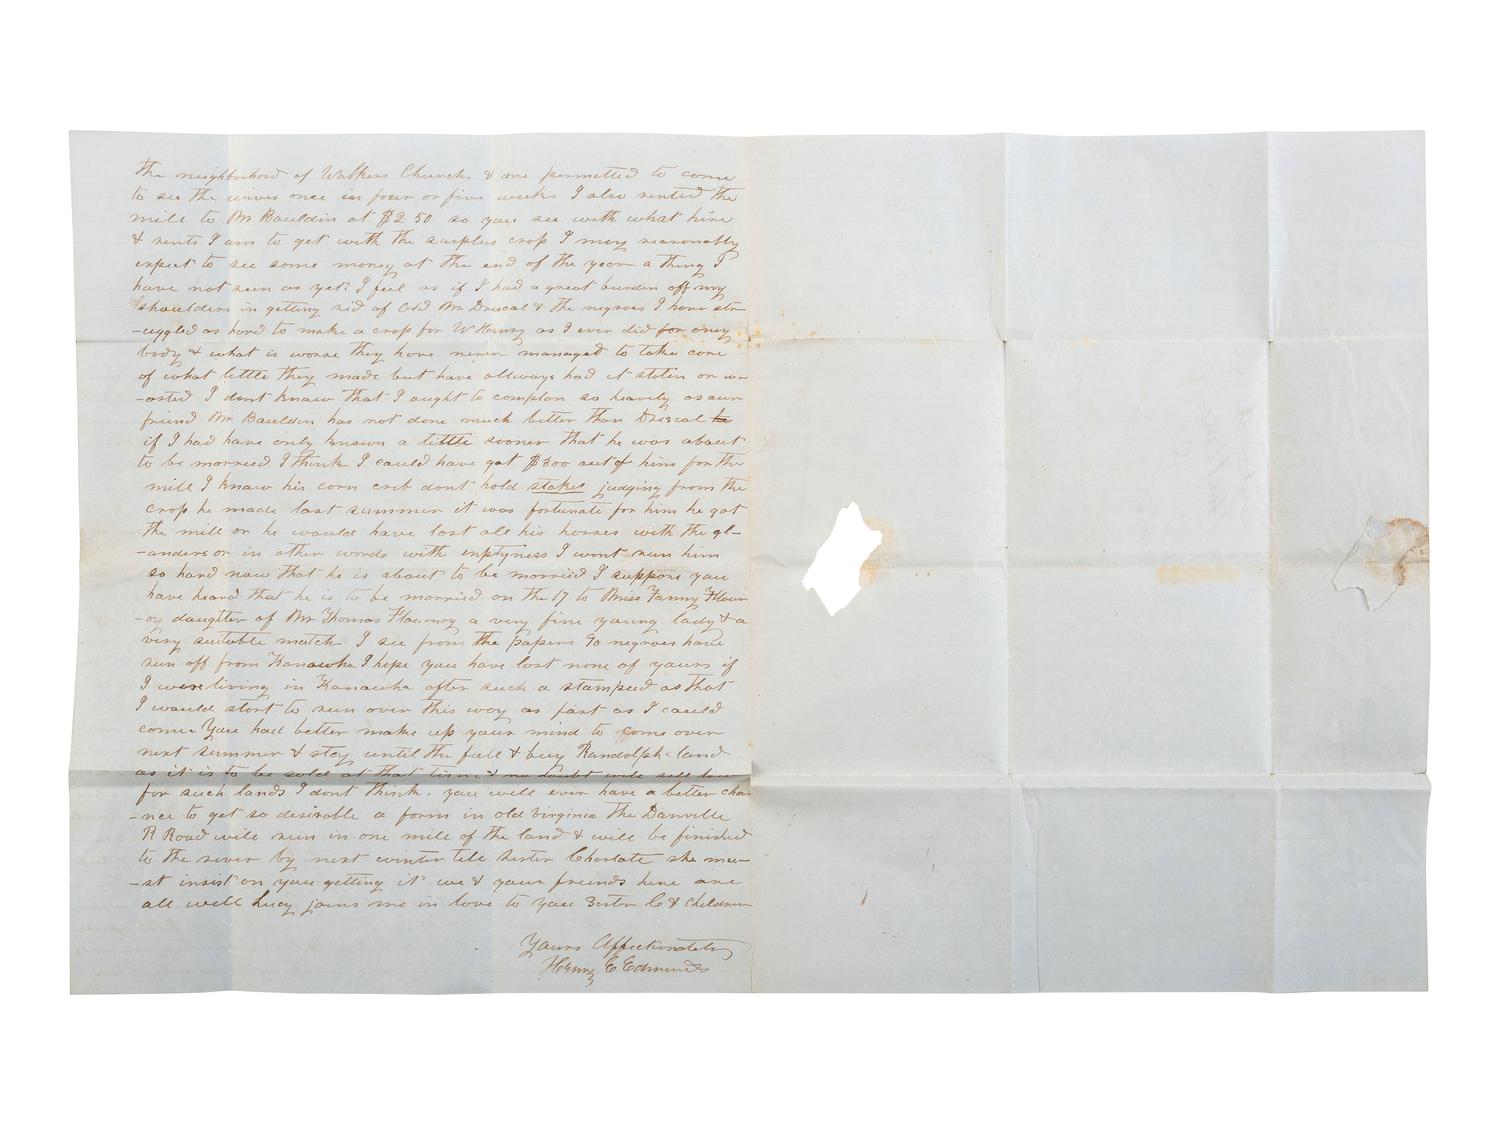 the neighborhood of Walkers Church & are permitted to come
to see the wives once in four or five weeks I also rented the
mill to Mr Bauldin at $250 so you see with what hire
& rents I am to get with the surplus crop I may reasonably
expect to see some money at the end of the year a thing I
have not seen as yet; I feel as if I had a great burden off my
shoulders in getting rid of Old Mr Driscal & the negroes I have str-
-uggled as hard to make a crop for W Henry as I ever did for any
body & what is worse they have never managed to take care
of what little they made but have allways had it stolen or w-
-asted I dont know that I aught to complan so heavily as our
friend Mr Bauldin has not done much better than Driscal he
if I had have only known a little sooner that he was about
to be married I think I could have got $300 out of him for the
mill I know his corn crib dont hold stakes judging from the
crop he made last summer it was fortunate for him he got
the mill or he would have lost all his horses with the gl-
-anders or in other words with emptyness I wont run him
so hard now that he is about to be married I suppose you
have heard that he is to be married on the 17 to Miss Fanny Flour
-oy daughter of Mr Thomas Flournoy a very fine young lady & a
very suitable match I see from the papers 90 negroes have
run off from Kanawha I hope you have lost none of yours if
I were living in Kanawha after such a stamped as that
I would start to run over this way as fast as I could
come. You had better make up your mind to come over
next summer & stay until the fall & buy Randolphs land
as it is to be sold at that time & no doubt will sell low
for such lands I dont think. you will ever have a better cha-
-nce to get so desirable a farm in old virginia The Danville
R Road will run in one mile of the land & will be finished
to the river by next winter tell sister Charlote she mu-
-st insist on you getting it we & your friends here are
all well Lucy joins me in love to you sister C & children
Yours Affectionately
Henry E Edmunds